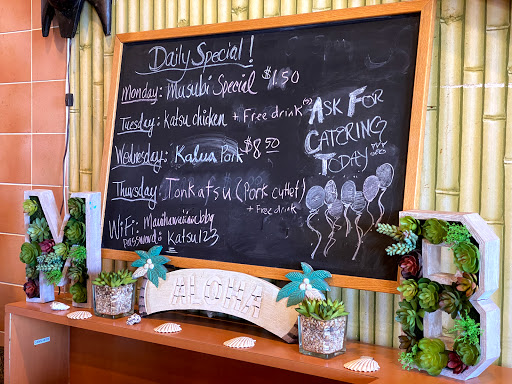 Daily Special!
Monday: Musubi Special $1.50
Tuesday: Katsu chicken + Free drink
Wednesday: Kalua Pork $8.50
Thursday: Tonkatsu (Pork cutlet)
+ Free drink
WiFi: Mauihawaiianbbq
password: Katsu123
ASK FOR
CATERING
TODAY
ALOHA
M
B